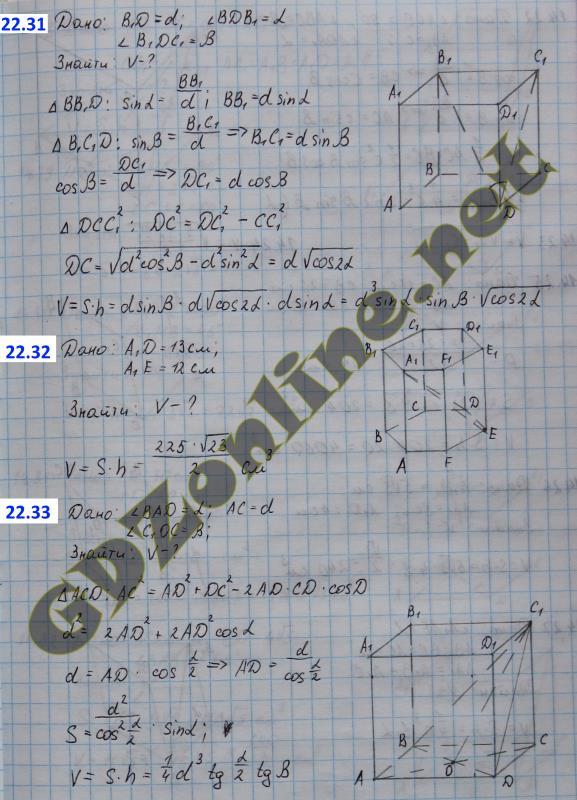 22.31 Дано: B₁D = d; ∠BDB₁ = α
∠B₁DC₁ = β
Знайти: V - ?
△BB₁D: sinα = BB₁/d; BB₁ = d sinα
△B₁C₁D: sinβ = B₁C₁/d => B₁C₁ = d sinβ
cosβ = DC₁/d => DC₁ = d cosβ
△DCC₁²: DC² = DC₁² - CC₁²
DC = √(d²cos²β - d²sin²α) = d√cos2α
V = S·h = d sinβ · d√cos2α · d sinα = d³ sinα · sinβ · √cos2α
A₁
B₁
C₁
D₁
A
B
C
D
22.32 Дано: A₁D = 13 см,
A₁E = 12 см
Знайти: V - ?
V = S·h = 225·√23/2 см³
C₁
D₁
B₁
A₁
F₁
E₁
C
D
B
E
A
F
22.33 Дано: ∠BAD = α; AC = d
∠C₁OC = β;
Знайти: V - ?
△ACD: AC² = AD² + DC² - 2AD·CD·cosD
d² = 2AD² + 2AD² cosα
d = AD · cos α/2 => AD = d/cos α/2
S = d²/cos² α/2 · sinα;
V = S·h = 1/4 d³ tg α/2 tgβ
B₁
C₁
A₁
D₁
B
C
O
A
D
GDZonline.net